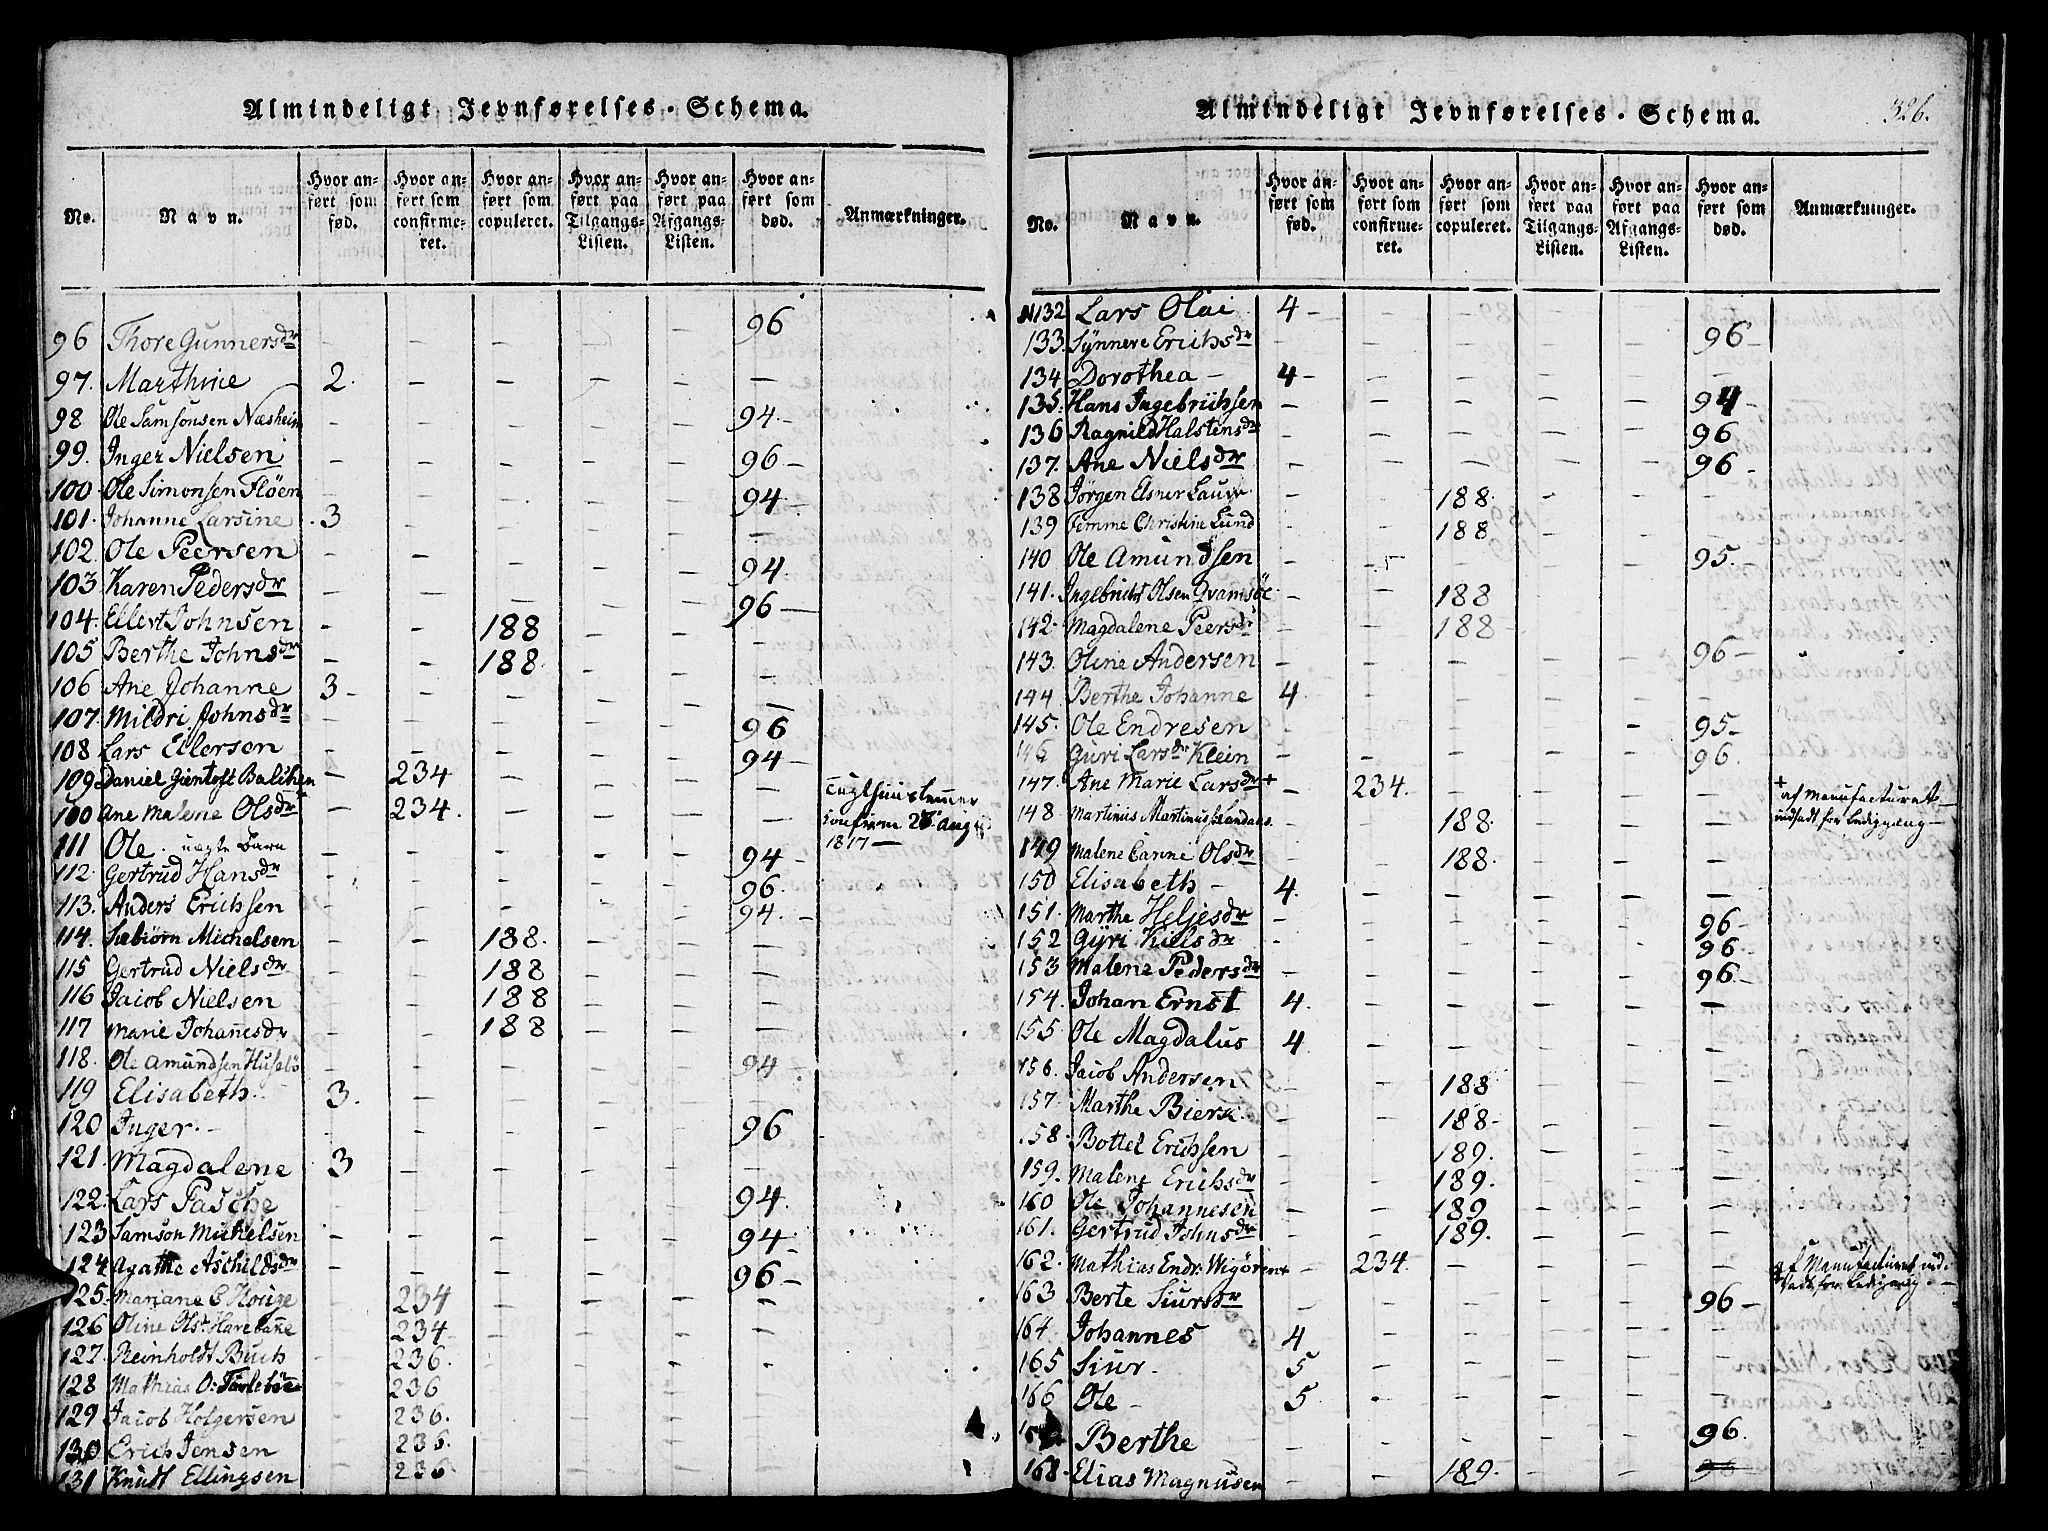 Almindeligt Jevnførelses-Schema.
No. | Navn. | Hvor anført som fød. | Hvor anført som confirmeret. | Hvor anført som copuleret. | Hvor anført paa Tilgangs-Listen. | Hvor anført paa Afgangs-Listen. | Hvor anført som død. | Anmærkninger.
96 Thore Gunnersdr - - - - - 96
97. Marthine 2. - - - - -
98 Ole Samsonsen Næsheim - - - - - 94.-
99. Inger Nielsen - - - - - 96-
100. Ole Simonsen Fløen - - - - - 94-
101. Johanne Larsine 3
102. Ole Peersen - - - - - 94.
103 Karen Pedersdr - - - - - 96-
104. Ellert Johnsen - - 188 - - -
105 Berthe Johnsdr - - 188. - - -
106 Ane Johanne 3- - - - - -
107. Mildri Johnsdr - - - - - 96
108 Lars Ellersen - - - - - 94-
109 Daniel Gientoft Balchen - 234 - - - -
100 Ane Malene Olsdr - 234. - - - - Tugthuuslemer confirm 28. Aug 1817-
111 Ole. uægte Barn - - - - - 94-
112. Gertrud Hansdr - - - - - 96.
113. Anders Erichsen - - - - - 94.-
114. Sæbiörn Michelsen - - 188. - - -
115 Gertrud Nielsdr - - 188 - - -
116 Jacob Nielsen - - 188 - - -
117 Marie Johanesdr - - 188 - - -
118. Ole Amundsen Husebö - - - - - 94.
119 Elisabeth. 3. - - - - -
120 Inger.- - - - - - 96
121. Magdalene 3 - - - - -
122. Lars Pasche - - - - - 94.
123 Samson Michelsen - - - - - 94.-
124 Agathe Aschildsdr - - - - - 96-
125. Mariane Horige - 234 - - - -
126 Oline Olsd Harebane - 234 - - - -
127. Reinholdt Buch - 236. - - - -
128 Mathias O: - 236 - - - -
129 Jacob Holgersen - 236. - - - -
130 Erich Jensen - 236. - - - -
131 Knudt Ellingsen - 236 - - - -
Almindeligt Jevnførelses-Schema. 326.
No. | Navn. | Hvor anført som fød. | Hvor anført som confirmeret. | Hvor anført som copuleret. | Hvor anført paa Tilgangs-Listen. | Hvor anført paa Afgangs-Listen. | Hvor anført som død. | Anmærkninger.
N132 Lars Olai 4 - - - - - -
133. Synnere Erichsdr - - - - - 96
134 Dorothea - 4 - - - - - -
135. Hans Ingebrichsen - - - - - 94-
136 Ragnild Halstensdr - - - - - 96
137. Ane Nielsdr - - - - - 96-
138 Jörgen Elsner - - 188. - - -
139 Femme Christine Lund - - 188 - - -
140 Ole Amundsen - - - - - 95.-
141. Ingebricht Olsen Qvamsöe - - 188 - - -
142- Magdalene Peersdr - - 188- - - -
143. Oline Andersen - - - - - 96-
144 Berthe Johanne 4. - - - - -
145. Ole Endresen - - - - - 95-
146 Guri Larsdr Klein - - - - - 96.
147. Ane Marie Larsdr + - 234. - - - - + af Manufacturet indsadt for Lediggang-
148 Martinius Martinius - - 188. - - -
149 Malene Carine Olsdr - - 188. - - -
150 Elisabeth - 4. - - - - -
151. Marthe Heljesdr - - - - - 96-
152 Gyri Kielsdr - - - - - 96-
153 Malene Pedersdr - - - - - 96.-
154. Johan Ernst 4. - - - - -
155 Ole Magdalus 4. - - - - -
156. Jacob Andersen - - 188 - - -
157. Marthe Biersd. - - 188- - - -
158. Bottel Erichsen - - 189. - - -
159. Malene Erichsdr - - 189. - - -
160 Ole Johannesen - - 189 - - -
161. Gertrud Johnsdr - - 189. - - -
162. Mathias Endr: Wigören + - 234. - - - - af Manufacturet ind- sadt for Lediggang.-
163 Berte Siursdr - - - - - 96-
164. Johannes 4 - - - - -
165 Siur. 5 - - - - -
166 Ole - 5. - - - - -
Berthe - - - - - 96.
168. Elias Magnusen - - 189. - - 96